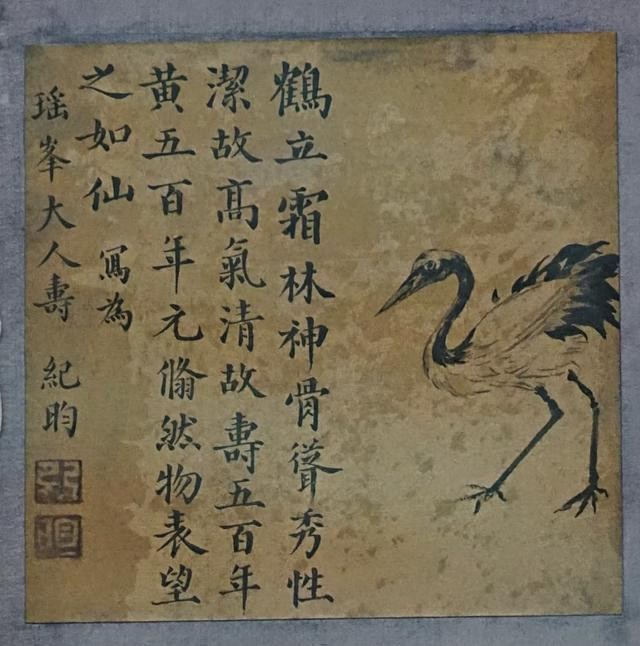 鶴立霜林神骨聳秀性
潔故髙氣清故壽五百年
黃五百年元翛然物表望
之如仙 寫為
瑶峯大人壽 紀昀